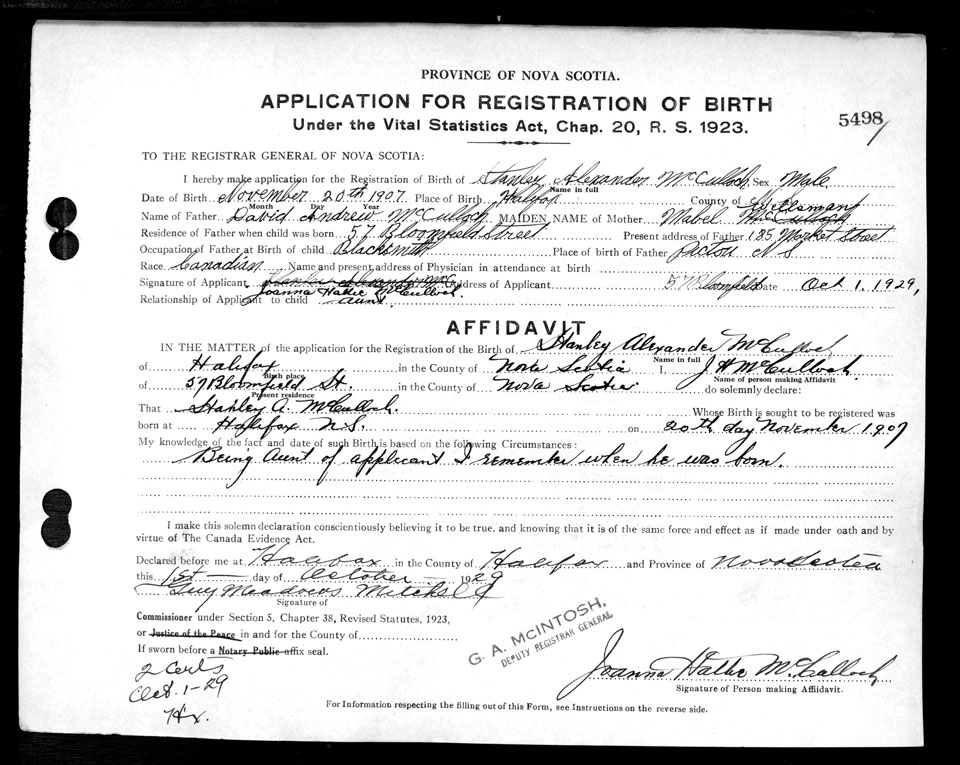 PROVINCE OF NOVA SCOTIA.
APPLICATION FOR REGISTRATION OF BIRTH
5498
Under the Vital Statistics Act, Chap. 20, R. S. 1923.
TO THE REGISTRAR GENERAL OF NOVA SCOTIA:
I hereby make application for the Registration of Birth of Stanley Alexander McCulloch Sex Male
Name in full
Date of Birth November 20th 1907 Place of Birth Halifax County of
Month Day Year
Name of Father David Andrew McCulloch MAIDEN NAME of Mother Mabel McCulloch
Residence of Father when child was born 57 Bloomfield Street Present address of Father 135 Market Street
Occupation of Father at Birth of child Blacksmith Place of birth of Father Pictou N S
Race. Canadian Name and present address of Physician in attendance at birth
Signature of Applicant Stanley Alexander Mc Address of Applicant 57 Bloomfield Date Oct 1, 1929,
Joanna Hattie McCulloch.
Relationship of Applicant to child Aunt
AFFIDAVIT
IN THE MATTER of the application for the Registration of the Birth of Stanley Alexander McCulloch
Name in full
of Halifax in the County of Nova Scotia I, J H McCulloch
Birth place
Name of person making Affidavit
of 57 Bloomfield St. in the County of Nova Scotia do solemnly declare:
Present residence
That Stanley A. McCulloch. Whose Birth is sought to be registered was
born at Halifax N.S. on 20th day November 1907
My knowledge of the fact and date of such Birth is based on the following Circumstances:
Being Aunt of applicant I remember when he was born.
I make this solemn declaration conscientiously believing it to be true, and knowing that it is of the same force and effect as if made under oath and by
virtue of The Canada Evidence Act.
Declared before me at Halifax in the County of Halifax and Province of Nova Scotia
this 1st day of October 1929
Guy Meadows Mitchel
Signature of
Commissioner under Section 5, Chapter 38, Revised Statutes, 1923,
or Justice of the Peace in and for the County of
If sworn before a Notary Public affix seal.
G. A. MCINTOSH,
DEPUTY REGISTRAR GENERAL
2 Certs
Oct. 1-29
Hx.
Joanna Hattie McCulloch
Signature of Person making Affidavit.
For Information respecting the filling out of this Form, see Instructions on the reverse side.